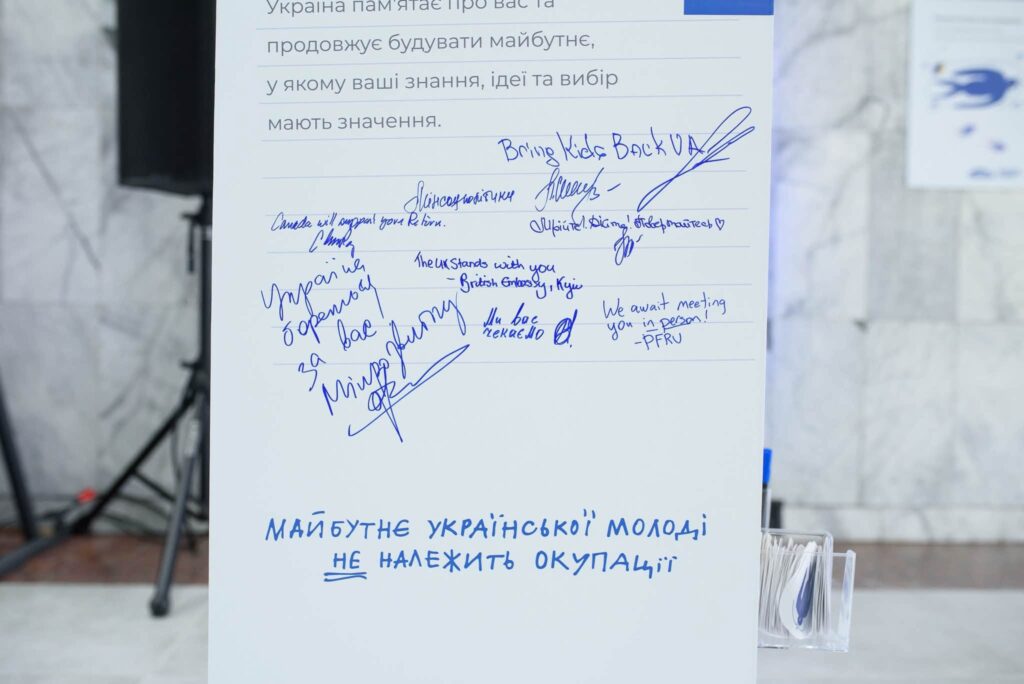 Україна пам'ятає про вас та
продовжує будувати майбутнє,
у якому ваші знання, ідеї та вибір
мають значення.
Bring Kids Back UA
Мінсоцполітики
Canada will support your Return.
Мрійте! Дійте! Повертайтесь ♡
The UK Stands with you
- British Embassy, Kyiv
Україна
бореться
за вас!
Ми вас
чекаємо
We await meeting
you in person!
-PFRU
МАЙБУТНЄ УКРАЇНСЬКОЇ МОЛОДІ
НЕ НАЛЕЖИТЬ ОКУПАЦІЇ